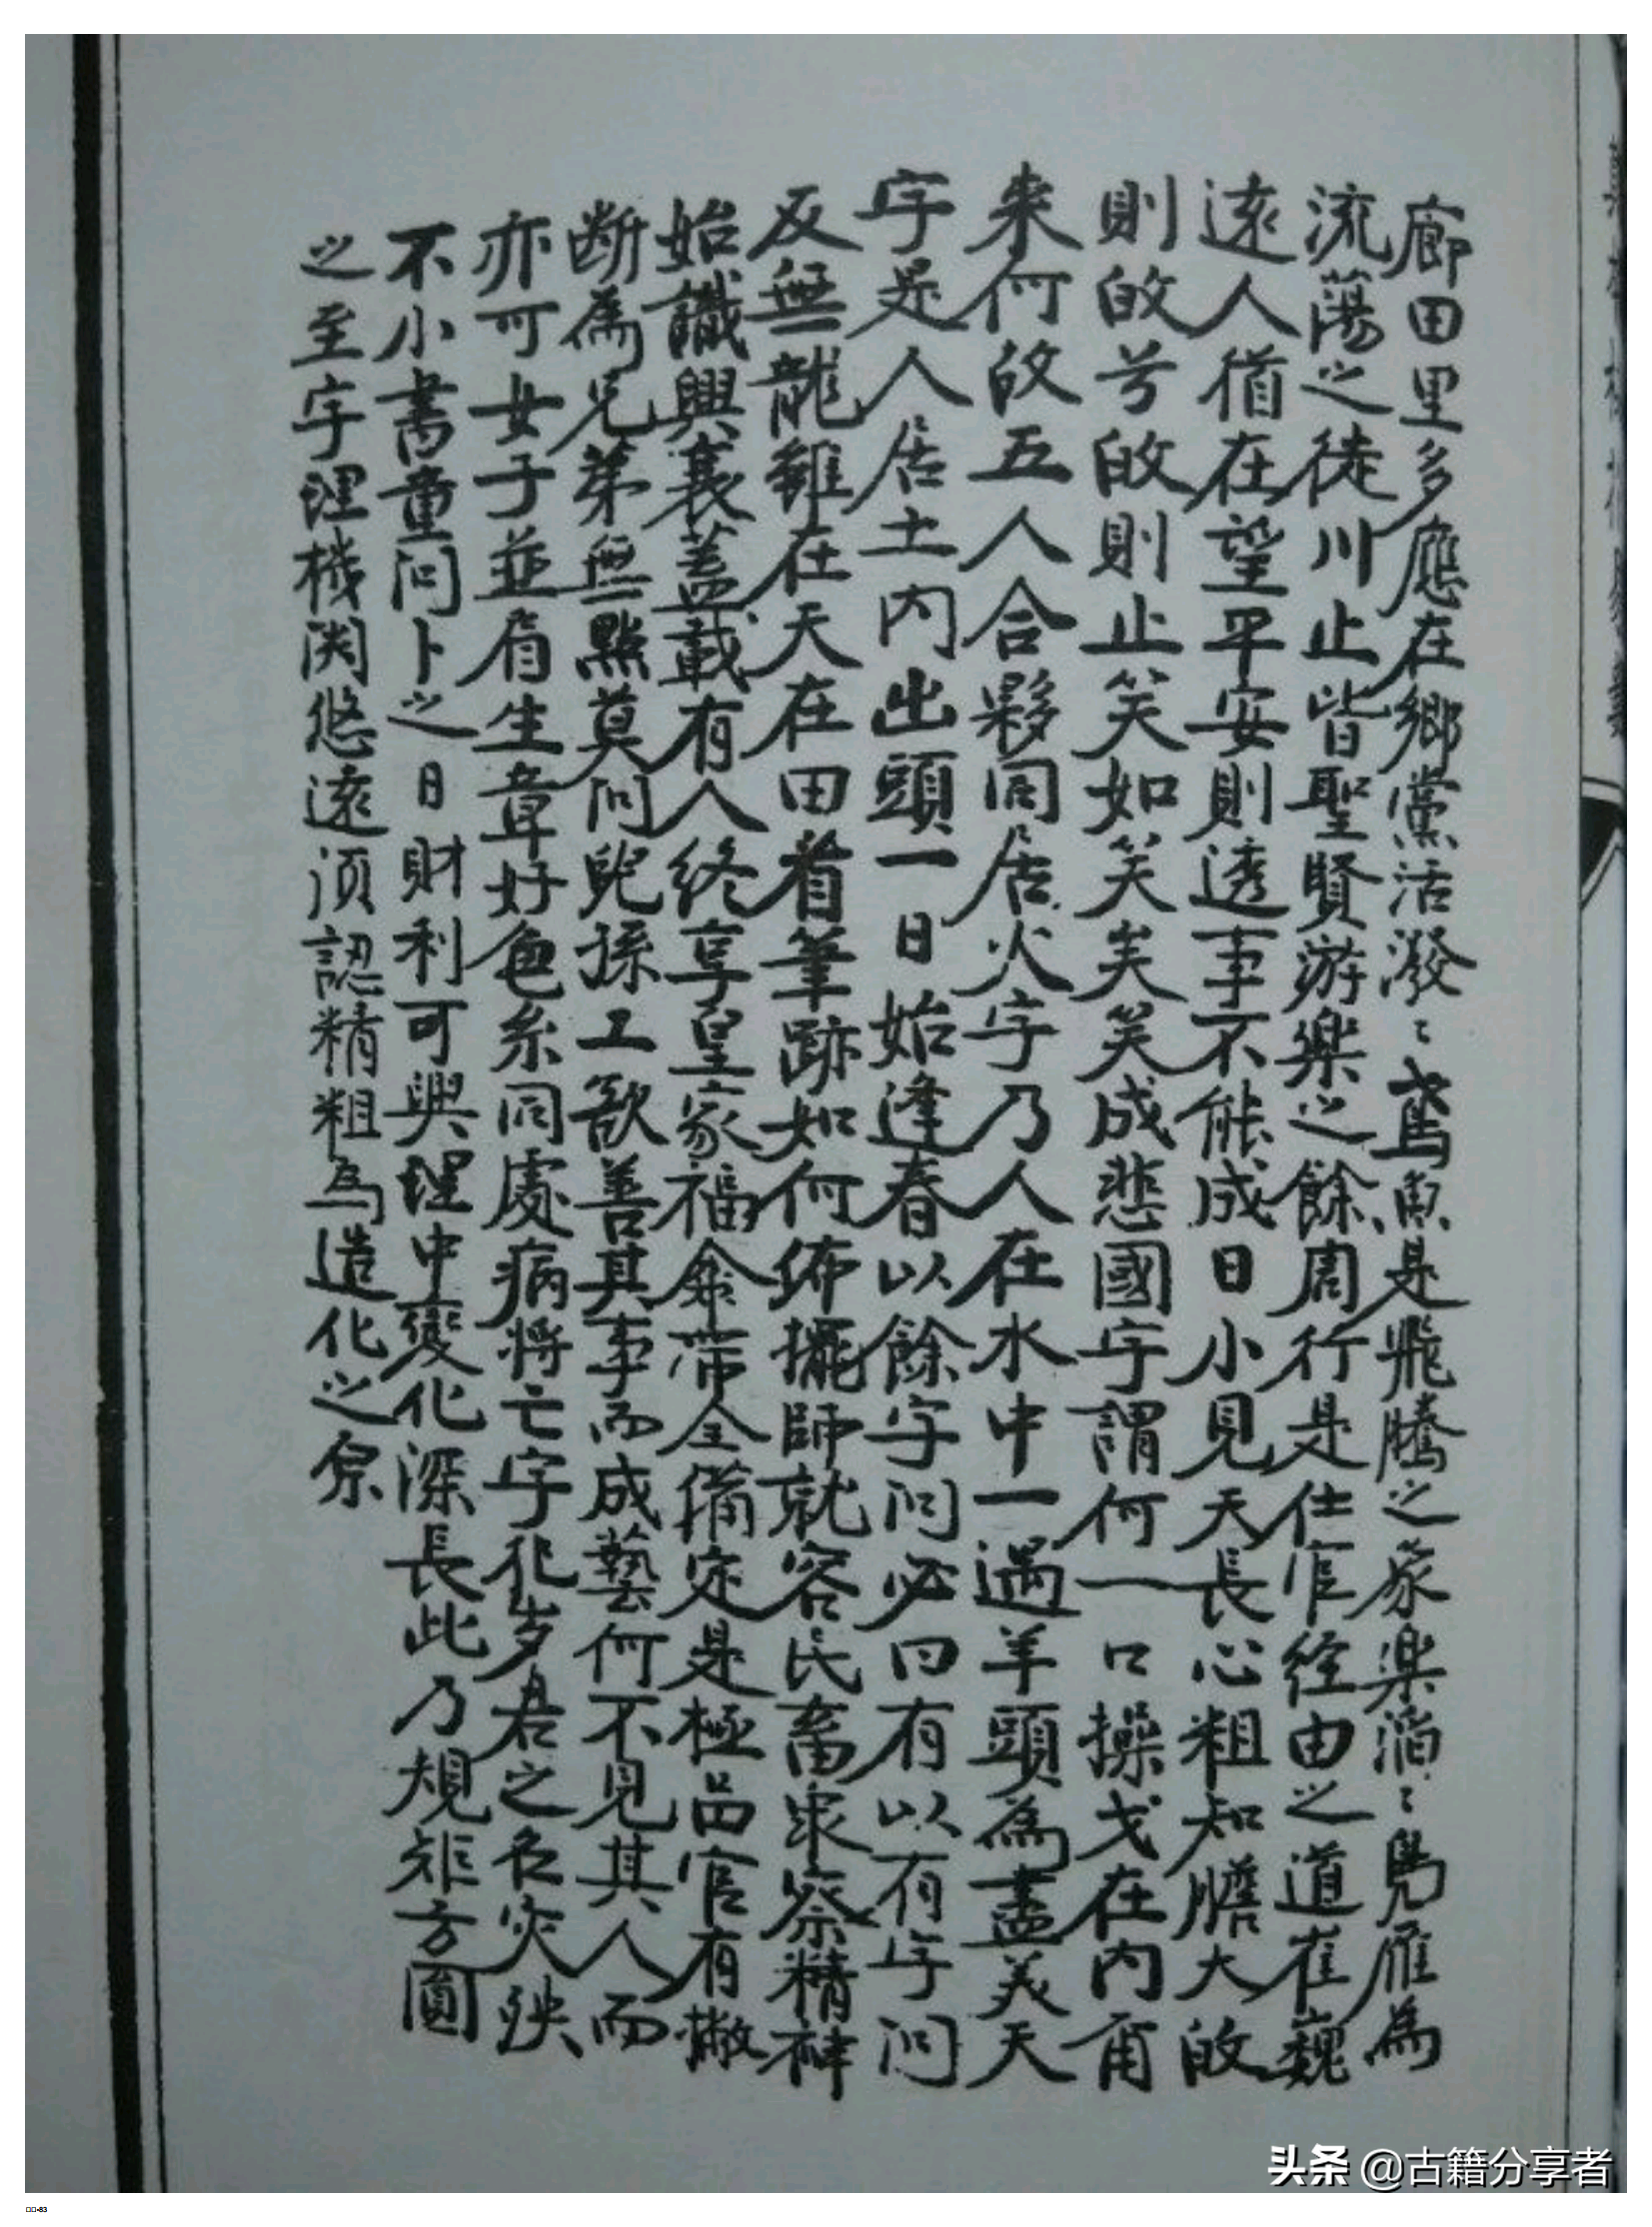 廊田里多應在鄉黨活潑〻鳶魚是飛騰之象樂滔〻鳧雁為
流蕩之徒川止皆聖賢游樂之餘周行是仕宦經由之道崔巍
遠人猶在望平安則透事不能成日小見天長心粗知膽大的
則的兮的則止笑如笑笑成悲國字謂何一口操戈在內
來何的五人合夥同居火字乃人在水中一過羊頭為盡美天
字是人居土內出頭一日始逢春以餘字問必曰有以有字問
反無龍雖在天在田着筆跡如何佈擺師就容民畜眾察精神
始識興衰蓋載有人終享皇家福金帶全備定是極品官有撇
断為兄弟無點莫問兒孫工欲善其事而成藝何不見其人而
亦可女子並肩生章好色糸同處病將亡字化岁君之名災殃
不小書童問卜之日財利可興理中變化深長此乃規矩方圓
之至字理機関悠遠須認精粗為造化之宗
头条 @古籍分享者
-83